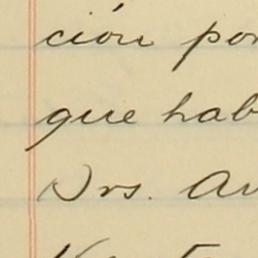 ción por
que hab
Drs. Av